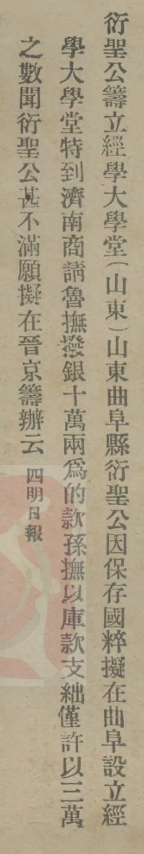 衍聖公籌立經學大學堂（山東）山東曲阜縣衍聖公因保存國粹擬在曲阜設立經
學大學堂特到濟南商請魯撫撥銀十萬兩爲的款孫撫以庫款支絀僅許以三萬
之數聞衍聖公甚不滿願擬在晉京籌辦云 四明日報